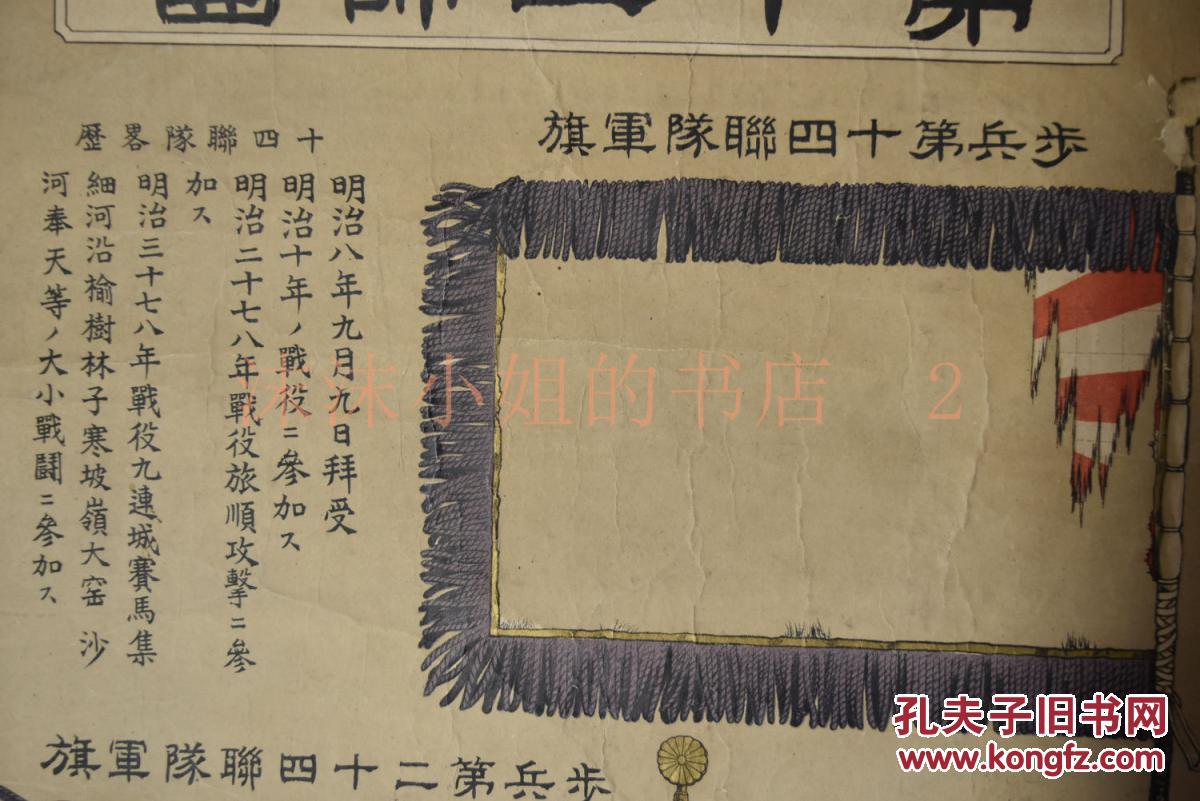 步兵第十四聯隊軍旗
十四聯隊畧歷
明治八年九月九日拜受
明治十年ノ戰役ニ參加ス
明治二十七八年戰役旅順攻擊ニ參
加ス
明治三十七八年戰役九連城賽馬集
細河沿楡樹林子寒坡嶺大窑 沙
河奉天等ノ大小戰鬪ニ參加ス
步兵第二十四聯隊軍旗
沫沫小姐的书店 2
孔夫子旧书网
www.kongfz.com